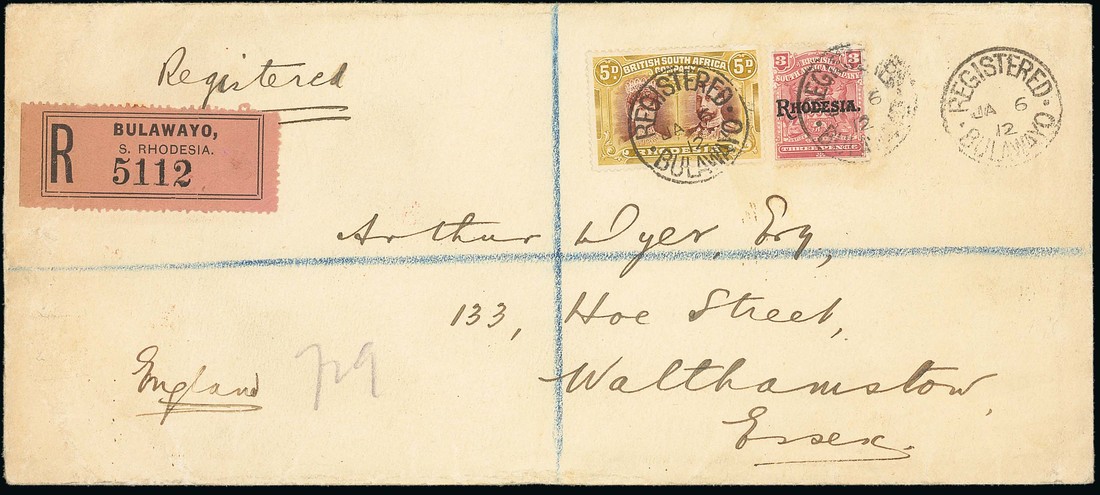 Registered
R
BULAWAYO,
S. RHODESIA.
5112
5D BRITISH SOUTH AFRICA 5D
COMPANY
RHODESIA
REGISTERED
JA 6
12
BULAWAYO
3 BRITISH 3
SOUTH AFRICA COMPANY
RHODESIA.
THREE PENCE
REGISTERED
6
12
BULAWAYO
REGISTERED
JA 6
12
BULAWAYO
Arthur Dyer, Esq,
133, Hoe Street,
Walthamstow,
Essex.
England
729